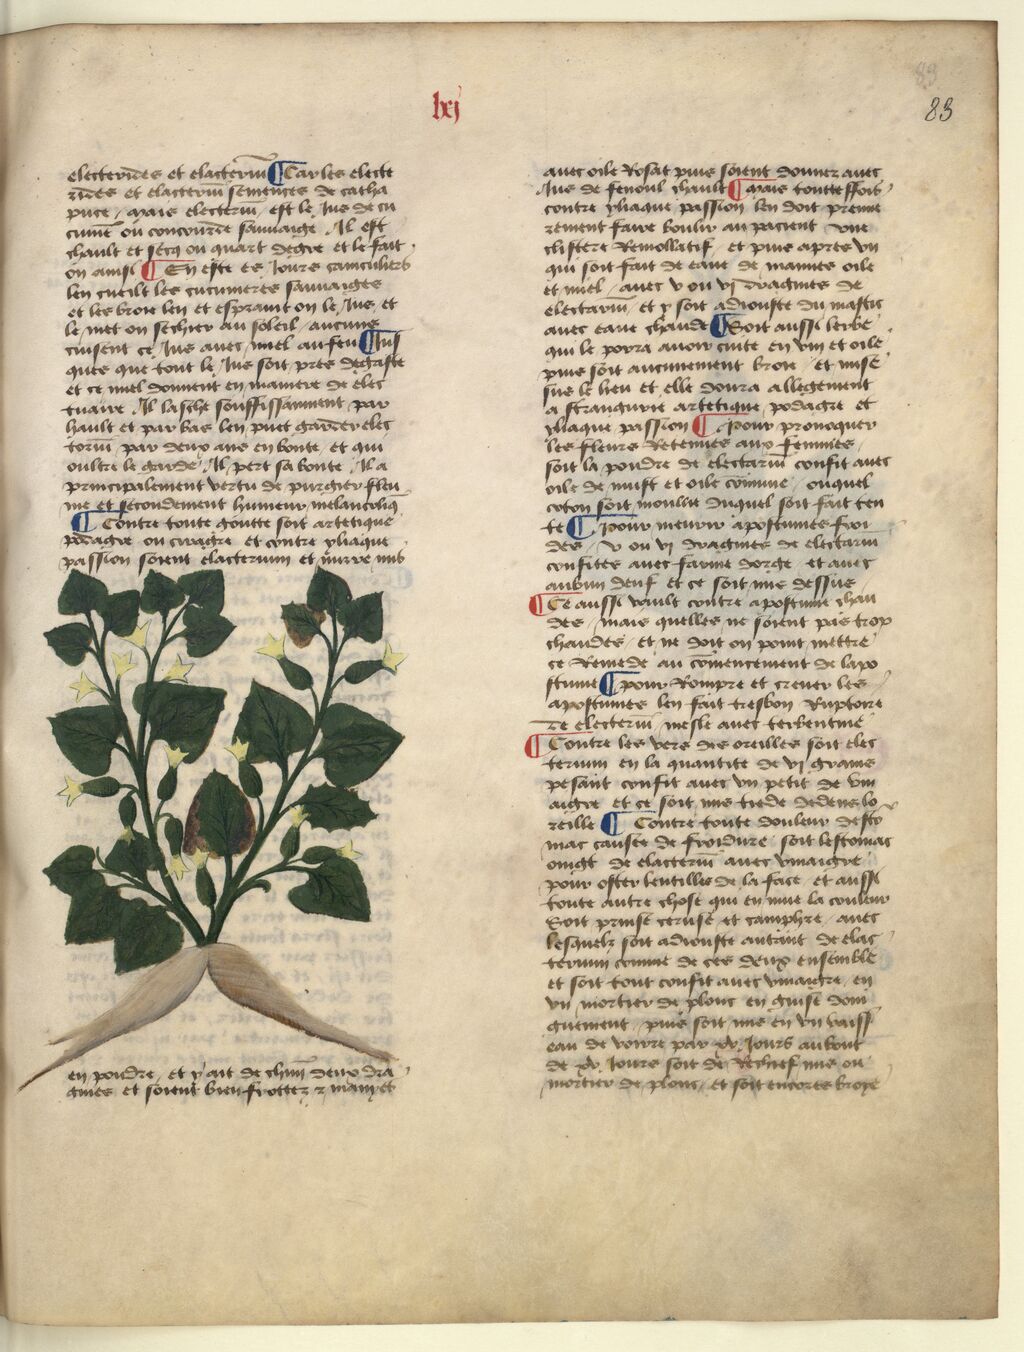 lxxj
83
83
electerides et elacteriu᷃ ¶ Car les electe
rides et elacteriu᷃ semences de catha
puce, mais electeriu᷃, est le Jus de cu
cume᷃ ou concourde sauuaige. Il est
chault et secq ou quart degre et le fait
on ainsi ¶ En este es Jours caniculiers
len cueilt les cucumeres sauuaiges
et les broie len et espraint on le Jus, et
le met on sechier au soleil, aucuns
cuisent ce Jus auec miel au feu ¶ Jus
ques que tout le Jus soit pres degaste
et ce miel donnent en maniere de elec
tuaire. Il lasche souffissamment par
hault et par bas len puet garder elec
toriu᷃ par deux ans en bonte, et qui
oultre le garde, Il pert sa bonte, Il a
principalement vertu de purgier fleu
me et secondement humeur melancoliq᷃
¶ Contre toute goutte soit artetique
podagre ou ciragre et contre yliaque
passion soient elacterium et mirre mis
en pouldre, et y ait de chun᷃ deux dra
gmes et soient bien frottez z main et
auec oile Rosat puis soient donnez auec
Jus de fenoul chault ¶ mais touttesfois
contre yliaque passion len doit premie
rement faire boulir au pacient vne
clistere Remollatif, et puis apres vn
qui soit fait de eaue de mauues oile
et miel, auec v ou vj dragmes de
electariu᷃, et y soit adiouste du mastic
auec eaue chaude ¶ Soit aussi lerbe
qui le porra auoir cuite en vin et oile
puis soit aucunement broie, et mise
sus le lieu et elle doura allegement
a strangurie artetique, podagre et
yliaque passion ¶ Pour prouoquer
les fleurs Retenues aux femmes,
soit la poudre de electariu᷃ confit auec
oile de must et oile co᷃mune, ouquel
coton soit moullie duquel soit fait ten
te ¶ Pour meurir apostumes froi
des, v ou vj dragmes de electariu᷃
confites auec farine dorge, et auec
aubun deuf et ce soit mis dessus
¶ Ce aussi vault contre apostume chau
des, mais quelles ne soient pas trop
chaudes, et ne doit on point mettre
ce Remede au co᷃mencement de lapo
stume ¶ Pour Rompre et creuer les
apostumes len fait tresbon Ruptoire
de electeriu᷃ mesle auec terbentine
¶ Contre les vers des oreilles soit elec
terium en la quantite de vj grains
pesant confit auec vn petit de vin
aigre et ce soit mis tiede dedens lo
reille ¶ Contre toute douleur desto
mac causee de froidure, soit lestomac
oingt de elacteriu᷃ auec vinaigre
pour oster lentilles de la face, et aussi
toute autre chose qui en mue la couleur
Soit prinse ceruse et camphre, auec
lesquelz soit adiouste autant de elac
terium comme de ces deux ensemble
et soit tout confit auec vinaigre, en
vn mortier de plonc en guise doin
guement, puis soit mis en vn vaiss
eau de voirre par xv Jours au bout
de xv Jours soit de Rechief mis ou
mortier de plonc, et soit encores broye